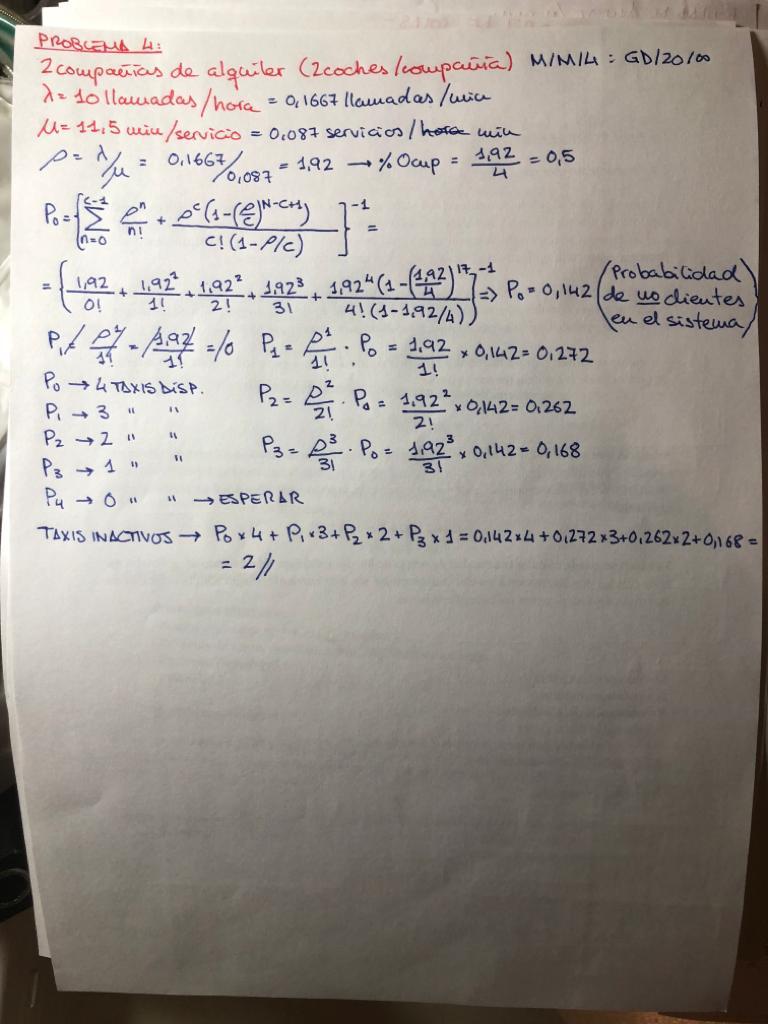 PROBLEMA 4:
2 compañías de alquiler (2 coches/compañía) M/M/4 : GD/20/∞
λ = 10 llamadas/hora = 0,1667 llamadas/min
μ = 11,5 min/servicio = 0,087 servicios/hora min
ρ = λ/μ = 0,1667/0,087 = 1,92 → % Ocup = 1,92/4 = 0,5
P₀ = {∑_{n=0}^{c-1} ρⁿ/n! + ρᶜ(1-(ρ/c)^{N-C+1})/c!(1-ρ/c)}⁻¹ =
= {1,92/0! + 1,92¹/1! + 1,92²/2! + 1,92³/3! + 1,92⁴(1-(1,92/4)¹⁷)/4!(1-1,92/4)}⁻¹ ⇒ P₀ = 0,142 (Probabilidad de no clientes en el sistema)
P₁ = ρ¹/1! = 1,92/1! = 0 P₁ = ρ¹/1! · P₀ = 1,92/1! × 0,142 = 0,272
P₀ → 4 TAXIS DISP.
P₂ = ρ²/2! · P₀ = 1,92²/2! × 0,142 = 0,262
P₁ → 3 " "
P₂ → 2 " "
P₃ = ρ³/3! · P₀ = 1,92³/3! × 0,142 = 0,168
P₃ → 1 " "
P₄ → 0 " " → ESPERAR
TAXIS INACTIVOS → P₀×4 + P₁×3 + P₂×2 + P₃×1 = 0,142×4 + 0,272×3 + 0,262×2 + 0,168 =
= 2 //